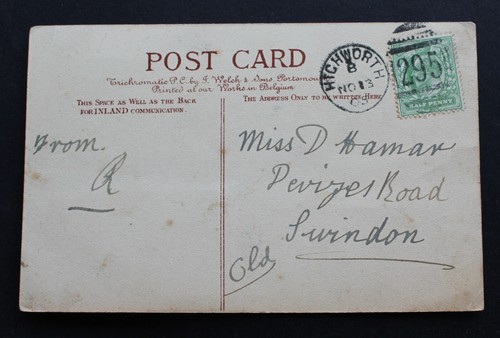 POST CARD
Trichromatic P.C. by J. Welch & Sons, Portsmouth
Printed at our Works in Belgium
THIS SPACE AS WELL AS THE BACK
FOR INLAND COMMUNICATION.
THE ADDRESS ONLY TO BE WRITTEN HERE
HIGHWORTH
B
NO 13
295
HALF PENNY
From.
R
Miss D Hamar
Devizes Road
Swindon
Old